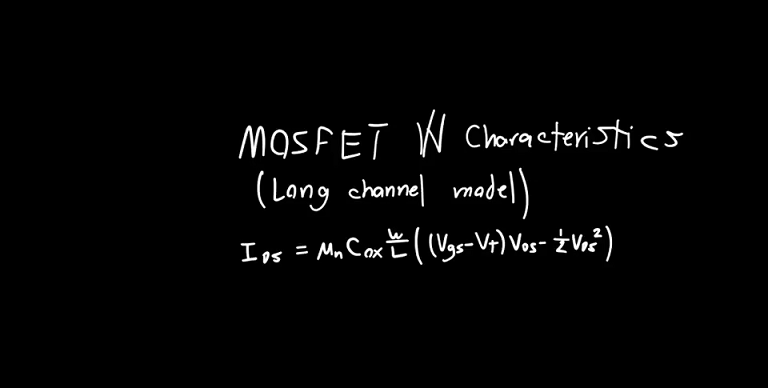 MOSFET IV Characteristics
(Long channel model)
I_DS = μ_n C_ox W/L ((V_gs - V_t) V_DS - 1/2 V_DS²)